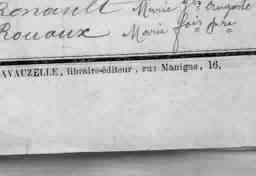 Renault Marie
Rouaux Marie
AVAUZELLE, libraire-éditeur, rue Manigne, 16.